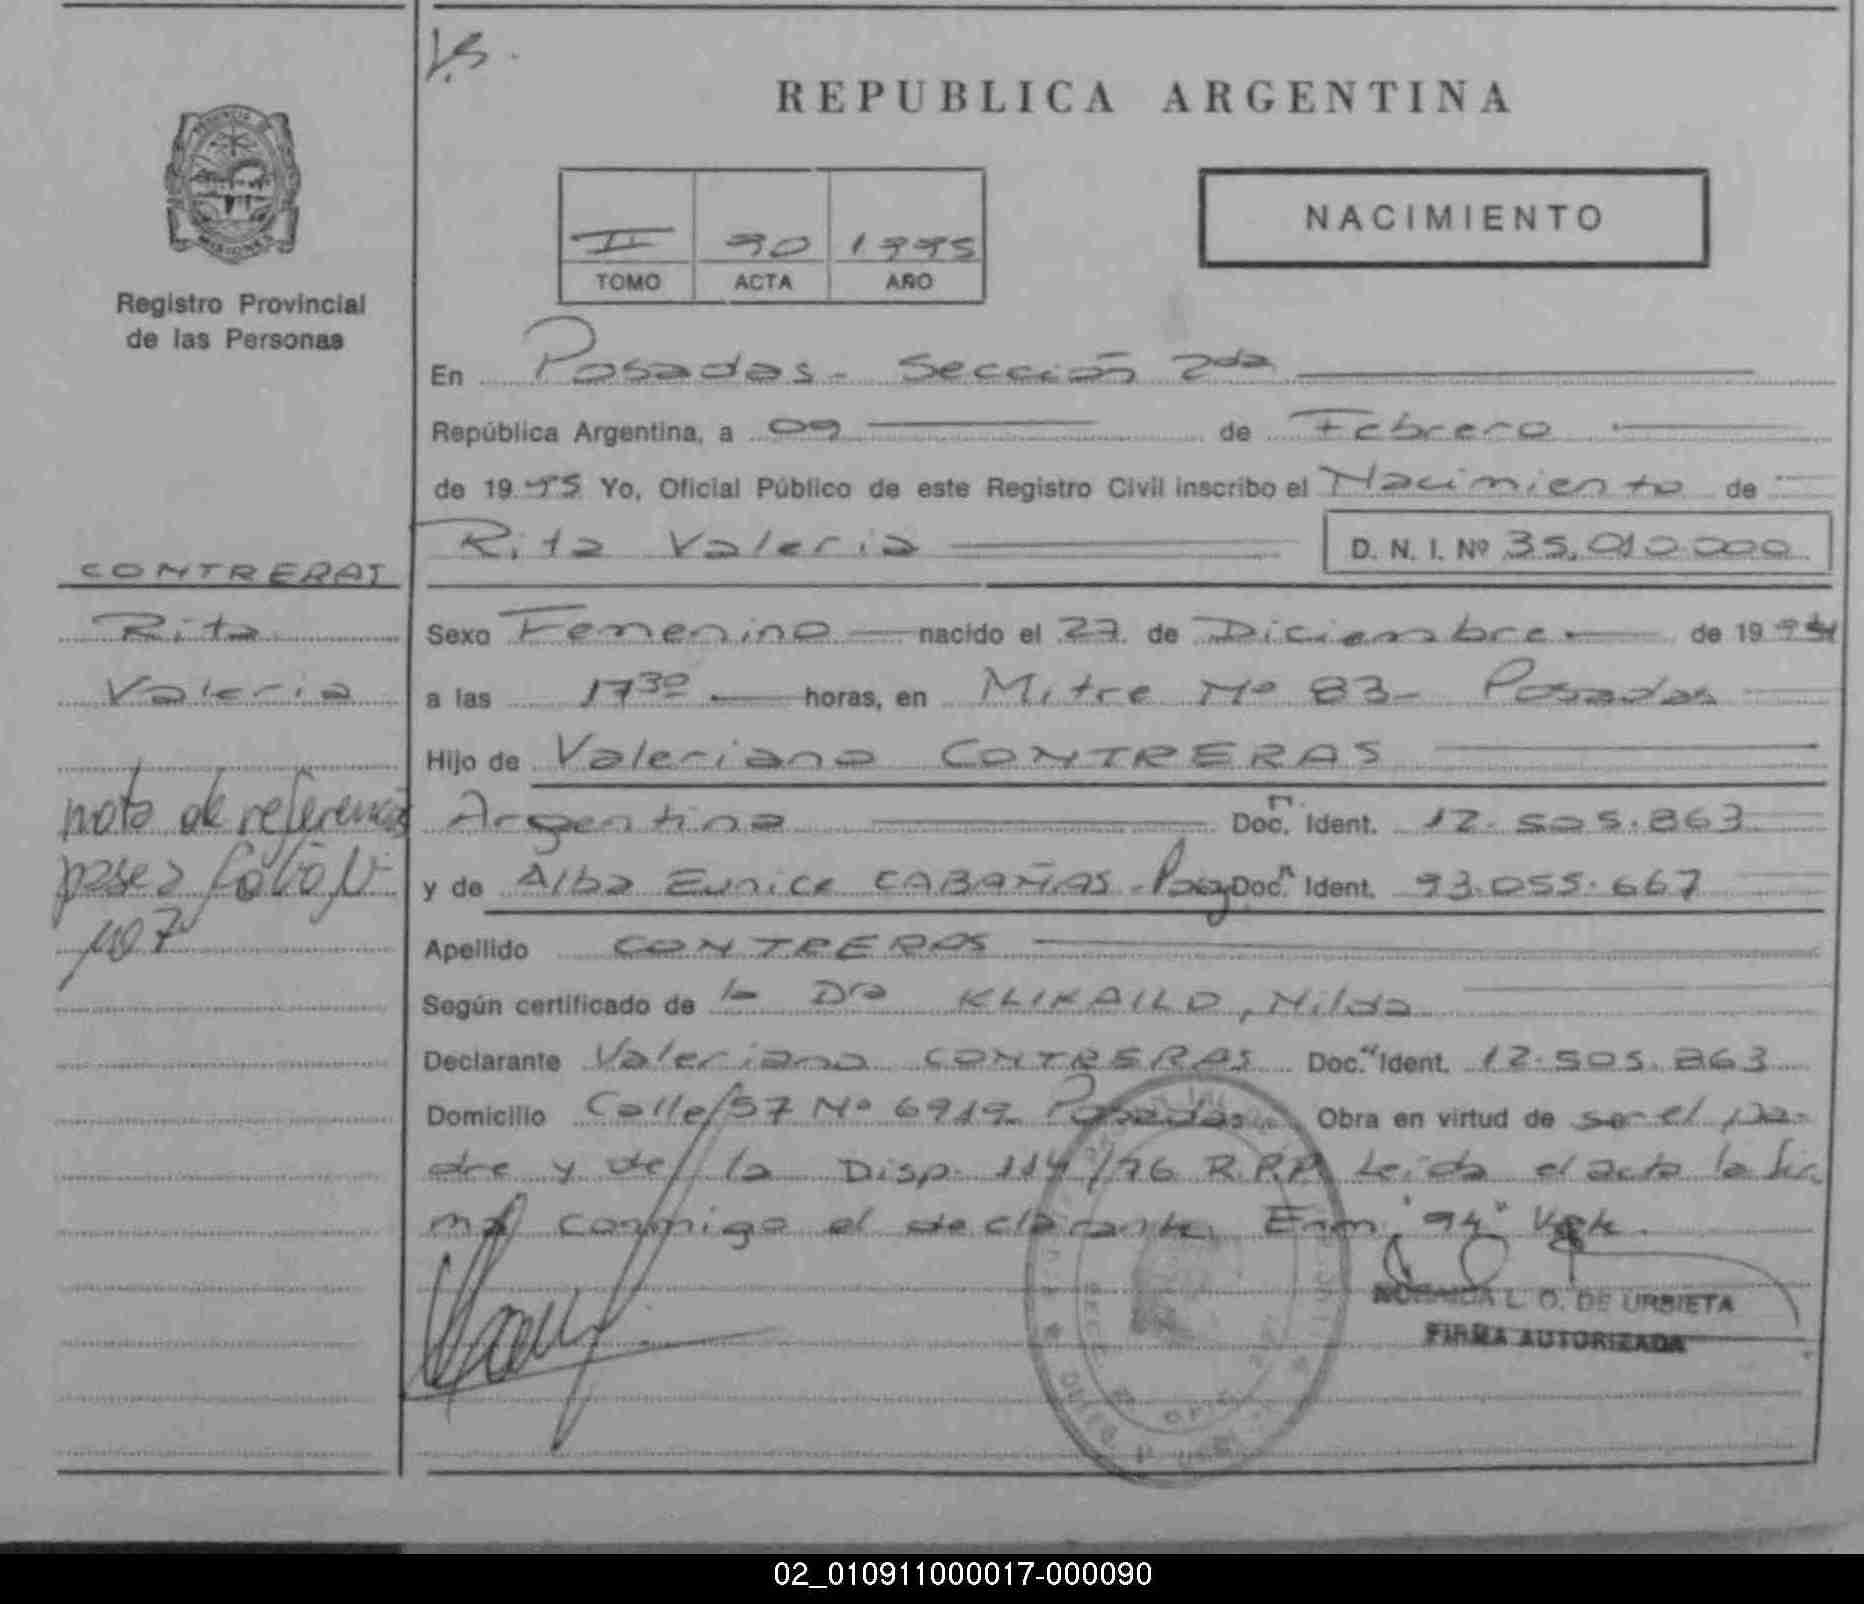 V.S.
REPUBLICA ARGENTINA
NACIMIENTO
II 90 1995
TOMO ACTA AÑO
Registro Provincial
de las Personas
En Posadas - Sección 2da
República Argentina, a 09 de Febrero
de 1995 Yo, Oficial Público de este Registro Civil inscribo el Nacimiento de
Rita Valeria D. N. I. Nº 35.010.000
CONTRERAS
Rita
Valeria
nota de referencia
pase a folio Nº
107
Sexo Femenino nacido el 27 de Diciembre de 1994
a las 17 30 horas, en Mitre Nº 83 - Posadas
Hijo de Valeriano CONTRERAS
Argentino Doc. Ident. 12.505.863
y de Alba Eunice CABAÑAS - Parag Doc. Ident. 93.055.667
Apellido CONTRERAS
Según certificado de la Dra KLIKAILO, Nilda
Declarante Valeriano CONTRERAS Doc. Ident. 12.505.863
Domicilio Calle 57 Nº 6919 Posadas Obra en virtud de ser el pa-
dre y de la Disp. 114/76 R.P.P. Leida el acta la fir-
ma conmigo el declarante. Enm. "94" Vale.
L. O. DE URBIETA
FIRMA AUTORIZADA
02_010911000017-000090